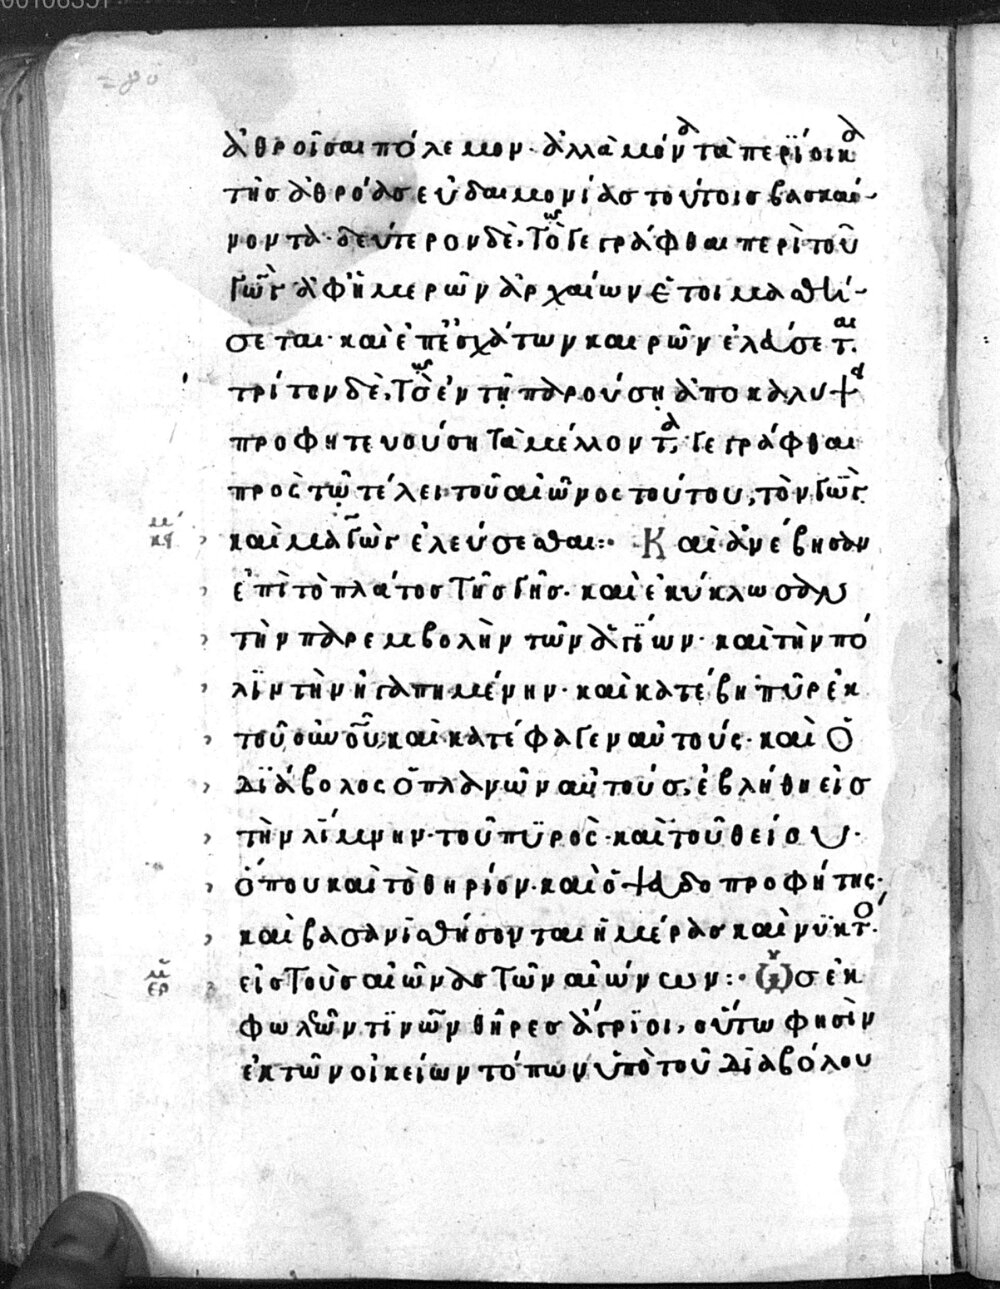 ἀθροῖσαι πόλεμον· ἀλλὰ μόν τὰ περϊοικ
τῆσ ἀθρόασ εὐδαιμονίασ τούτοισ βασκαί-
νοντα· δεύτερον δὲ, τὸ γεγράφθαι περὶ τοῦ
γὼγ ἀφ ἡμερῶν ἀρχαίων ἑτοιμασθή-
σεται· καὶ ἐπ ἐσχάτων καιρῶν ἐλάσετ.
τρίτον δὲ, τὸ ἐν τῆ παρούση ἀποκαλυψ
προφητευούση τὰ μέλλοντ, γεγράφθαι
πρὸς τῶ τέλει τοῦ αἰῶνος τούτου, τὸν γὼγ
καὶ μαγὼγ ἐλεύσεσθαι:· Καὶ ἀνέβησαν
ἐπὶ τὸ πλάτοσ τῆσ γῆσ· καὶ ἐκύκλωσαν
τὴν παρεμβολὴν τῶν ἁγίων· καὶ τὴν πό
λϊν τὴν ἠγαπημένην· καὶ κατέβη πῦρ ἐκ
τοῦ οὐνοῦ, καὶ κατέφαγεν αὐτούς· καὶ ὁ
διάβολος ὁ πλανῶν αὐτούσ, ἐβλήθη εἰσ
τὴν λίμνην· τοῦ πϋρὸς· καὶ τοῦ θείου·
ὅπου καὶ τὸ θηρίον· καὶ ὁ ψαδοπροφήτης·
καὶ βασανϊσθήσονται ἡμέρασ καὶ νϋκτὸ·
εἰσ τοὺσ αἰῶνασ τῶν αἰώνων:· Ὡσ ἐκ
φωλεῶν τϊνῶν θῆρεσ ἄγρϊοι, οὕτω φησὶν
ἐκ τῶν οἰκείων τόπων ὑπὸ τοῦ διαβόλου